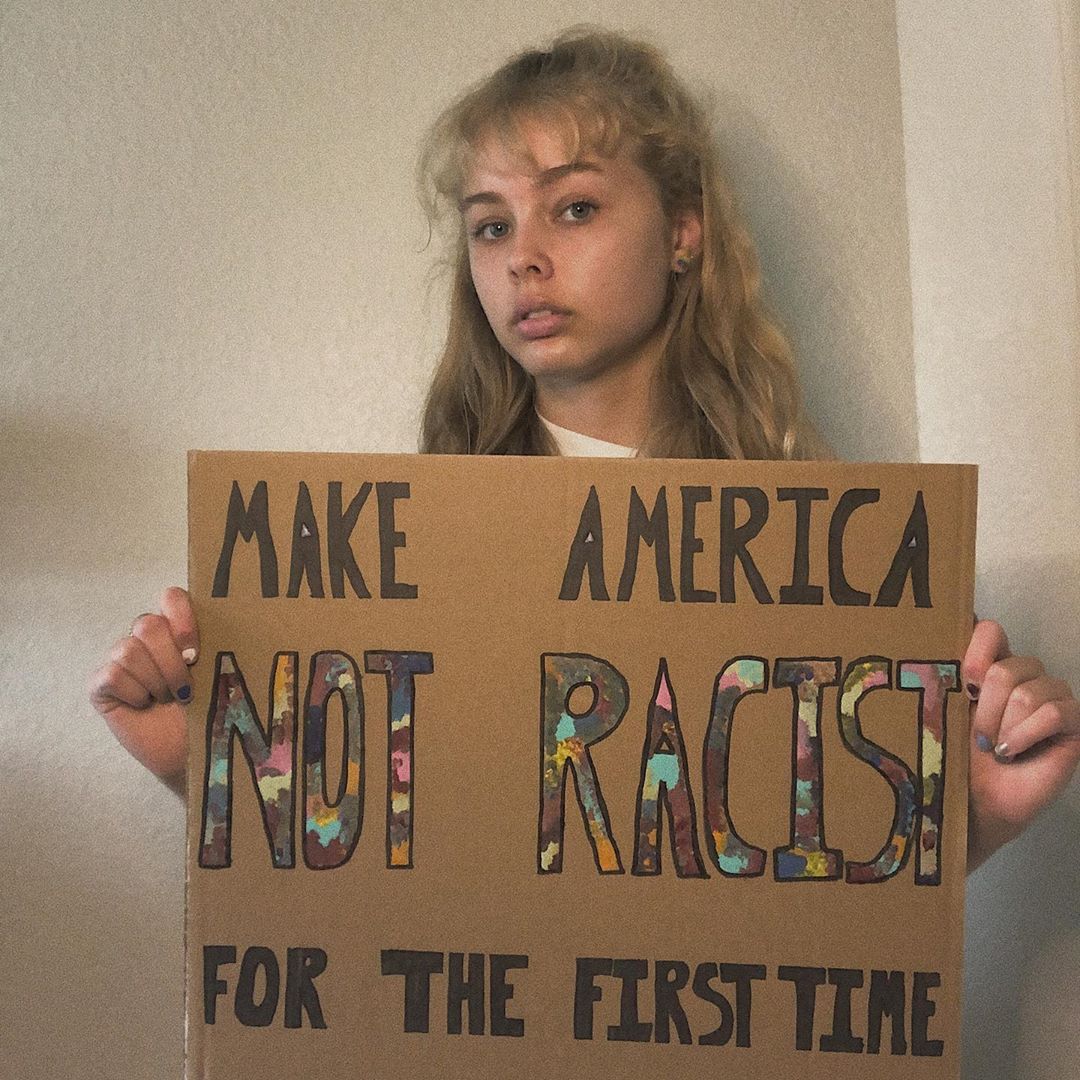 MAKE AMERICA
NOT RACIST
FOR THE FIRST TIME